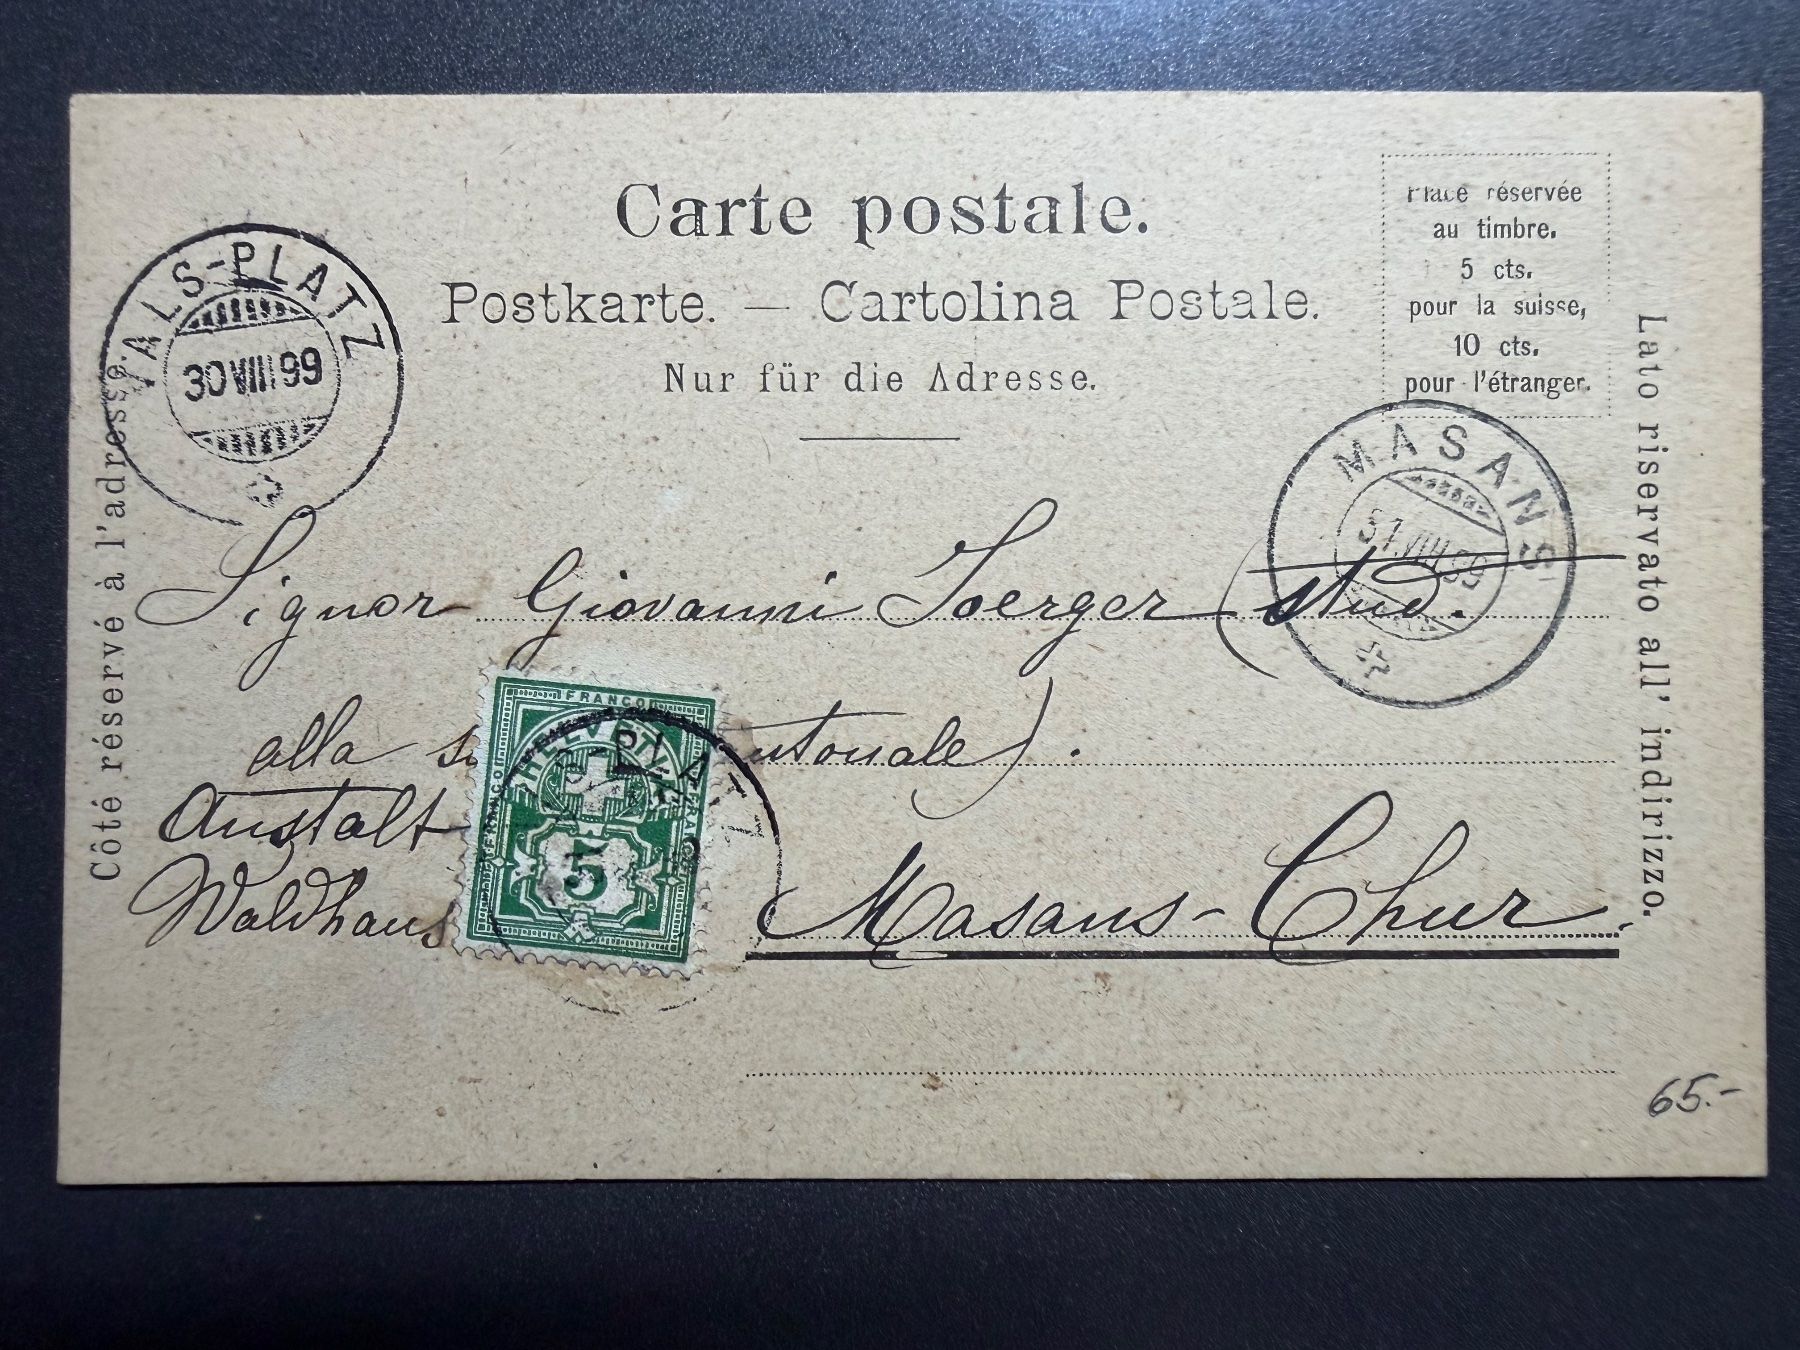 Carte postale.
Postkarte. — Cartolina Postale.
Nur für die Adresse.
Place réservée
au timbre.
5 cts.
pour la suisse,
10 cts.
pour l'étranger.
Côté réservé à l'adresse.
Lato riservato all' indirizzo.
VALS-PLATZ
30 VIII 99
MASANS
31.VIII.99
Signor Giovanni Joerger (stud.
alla
Anstalt
Waldhaus
Masans-Chur.
FRANCO
HELVETIA
FRANCO
5
PLATZ
65.-